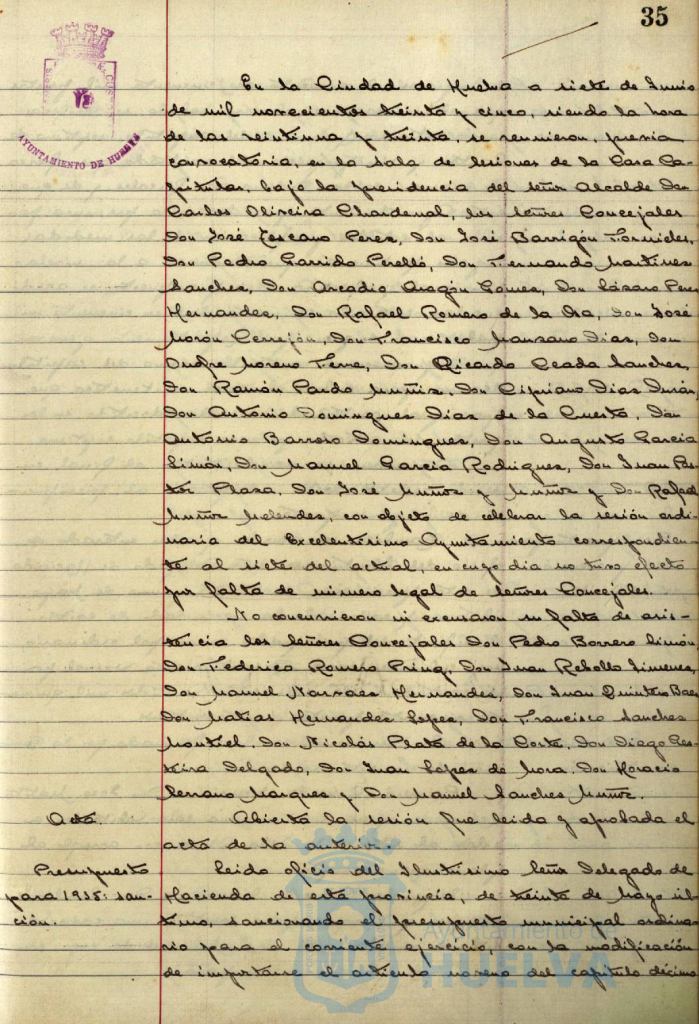 35
AYUNTAMIENTO DE HUELVA
En la Ciudad de Huelva a siete de Junio
de mil novecientos treinta y cinco, siendo la hora
de las veintiuna y treinta, se reunieron, previa
convocatoria, en la Sala de Sesiones de la Casa Ca-
pitular, bajo la presidencia del señor Alcalde Don
Carlos Oliveira Chardenal, los señores Concejales
Don José Lescano Perez, Don José Barrigón Fornieles,
Don Pedro Garrido Perelló, Don Fernando Martinez
Sanchez, Don Arcadio Aragón Gomez, Don Lázaro Perez
Hernandez, Don Rafael Romero de la Osa, Don José
Morón Cerrejón, Don Francisco Manzano Dias, Don
Onofre Moreno Terre, Don Ricardo Ceada Sanchez,
Don Ramón Pardo Muñiz, Don Cipriano Dias Durán,
Don António Dominguez Dias de la Cuesta, Don
António Barroso Dominguez, Don Augusto Garcia
Limón, Don Manuel Garcia Rodriguez, Don Juan Pas-
tor Plaza, Don José Muñoz y Muñoz y Don Rafael
Muñoz Melendez, con objeto de celebrar la sesión ordi-
naria del Excelentísimo Ayuntamiento correspondien-
te al siete del actual, en cuyo dia no tuvo efecto
por falta de número legal de señores Concejales.
No concurrieron ni excusaron su falta de asis-
tencia los señores Concejales Don Pedro Borrero Limón,
Don Federico Romero Prinq, Don Juan Rebollo Jimenez,
Don Manuel Narvaez Hernandez, Don Juan Quintero Baez
Don Matias Hernandez Lopez, Don Francisco Sanchez
Montiel, Don Nicolás Plata de la Corte, Don Diego Ges-
teira Delgado, Don Juan Lopez de Mora, Don Horacio
Serrano Marquez y Don Manuel Sanchez Muñiz.
Acta.
Abierta la sesión fue leida y aprobada el
acta de la anterior.
Presupuesto
para 1935: san-
ción.
Leido oficio del Ilustrísimo Señor Delegado de
Hacienda de esta provincia, de treinta de Mayo úl-
timo, sancionando el presupuesto municipal ordina-
rio para el corriente ejercicio, con la modificación
de importarse el articulo noveno del capitulo décimo
Ayuntamiento de
HUELVA